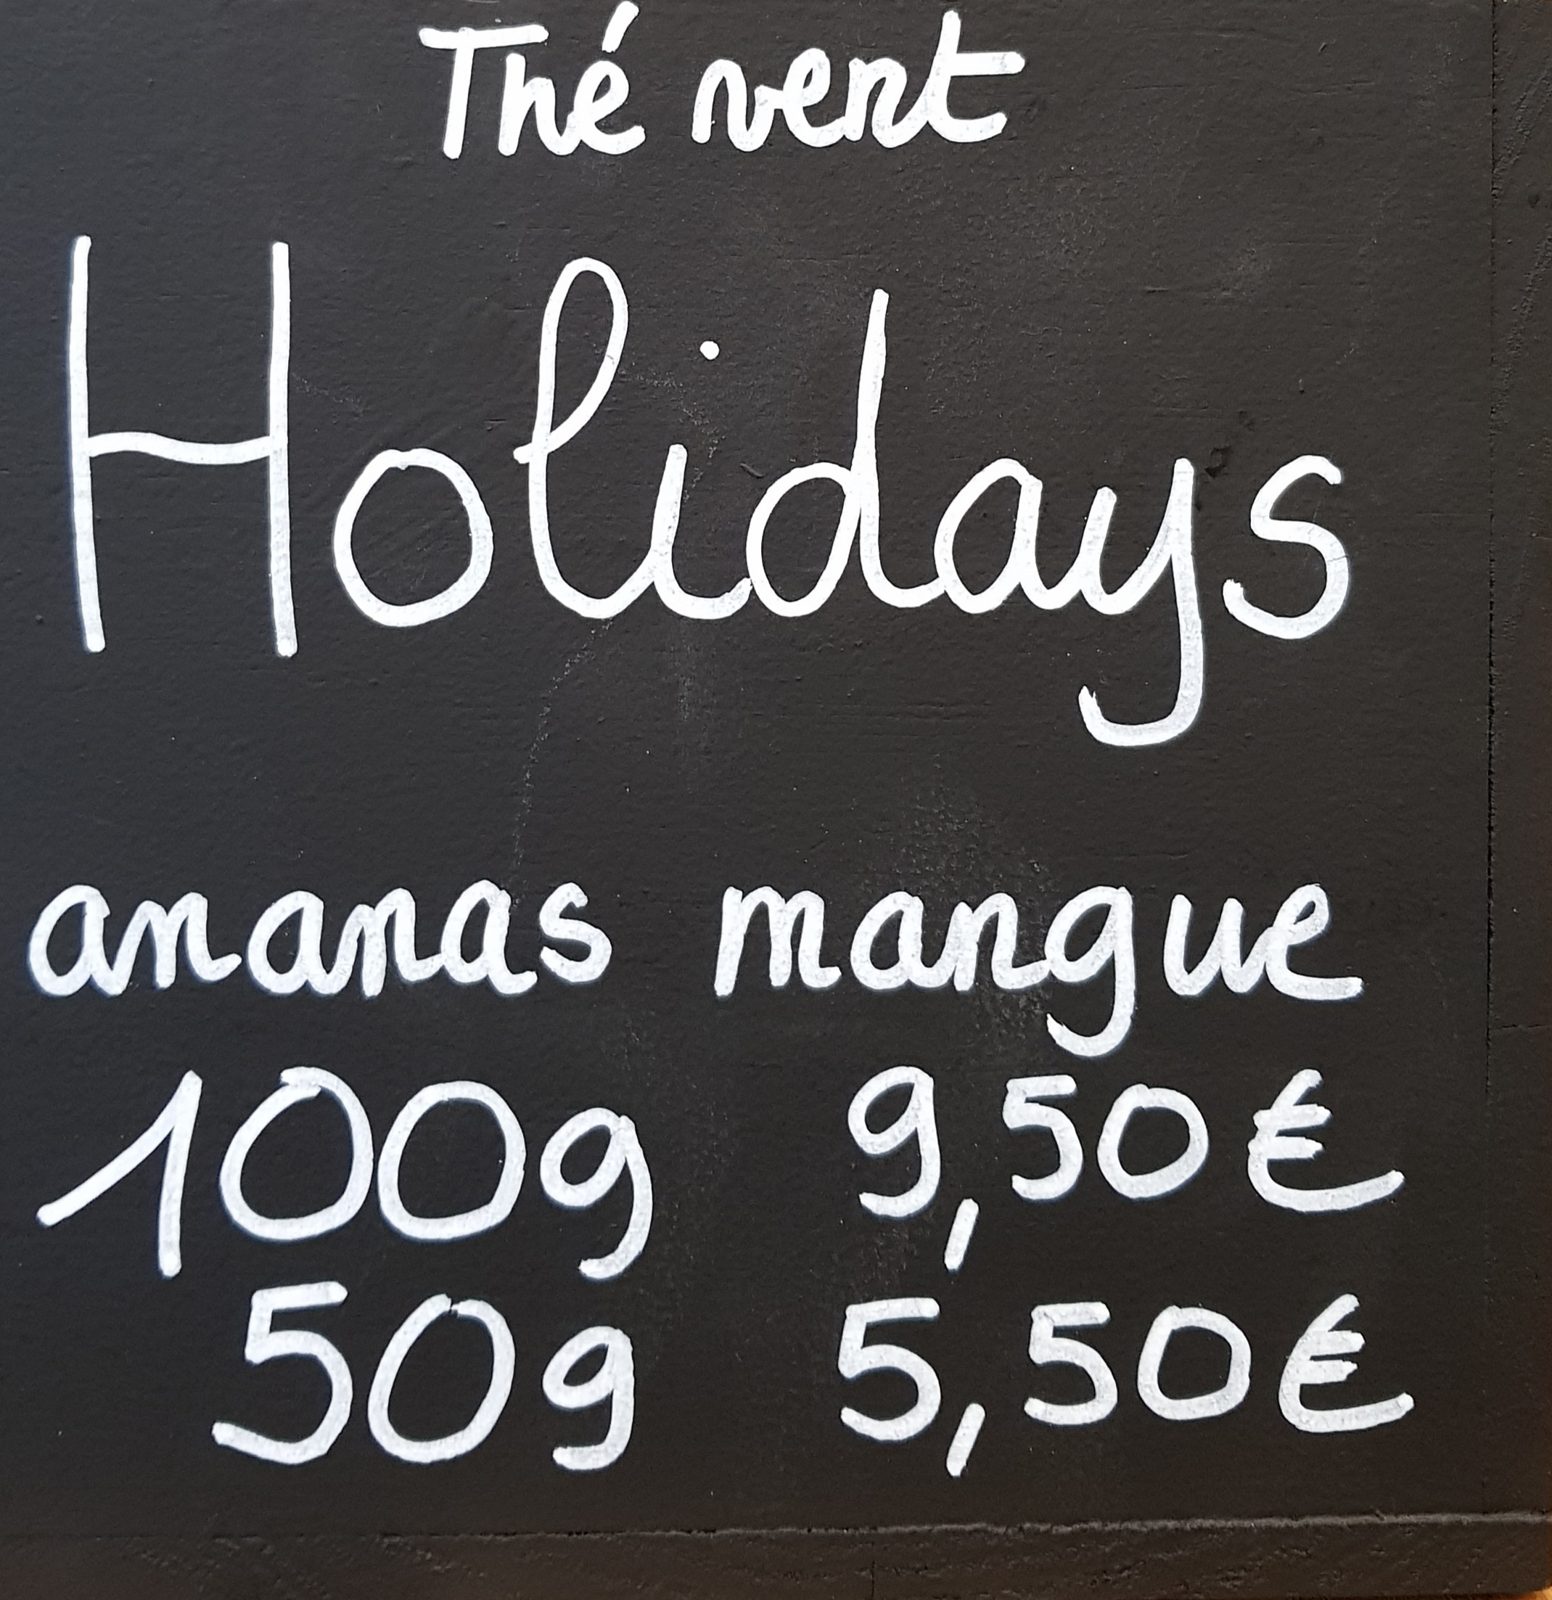 Thé vert
Holidays
ananas mangue
100g 9,50€
50g 5,50€